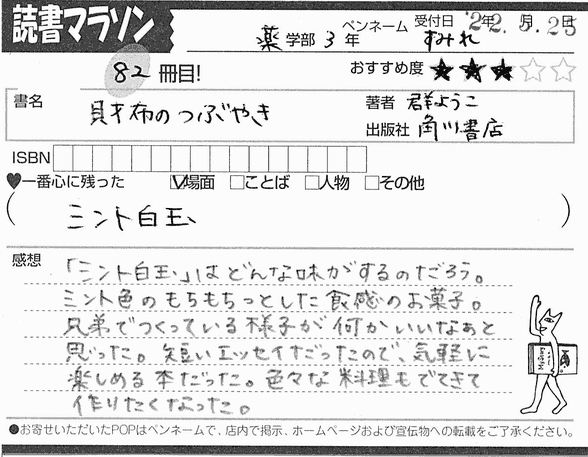 読書マラソン
薬学部3年 ペンネーム すみれ 受付日 '22年 5月.25
82冊目! おすすめ度 ★★★☆☆
書名 財布のつぶやき 著者 群ようこ
出版社 角川書店
ISBN
♥一番心に残った ☑場面 □ことば □人物 □その他
( ミント白玉 )
感想 「ミント白玉」はどんな味がするのだろう。
ミント色のもちもちっとした食感のお菓子。
兄弟でつくっている様子が何かいいなぁと
思った。短いエッセイだったので、気軽に
楽しめる本だった。色々な料理もでてきて
作りたくなった。
●お寄せいただいたPOPはペンネームで、店内で掲示、ホームページおよび宣伝物への転載をご了承ください。